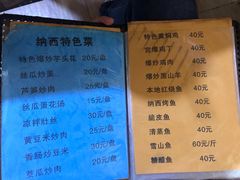 纳西特色菜
特色爆炒芋头花 20元/盘
丝瓜炒蛋 20元/盘
芦笋炒肉 25元/盘
丝瓜蛋花汤 15元/盘
凉拌肚丝 30元/盘
黄豆米炒肉 25元/盘
香肠炒豆米 30元/盘
茭瓜炒肉 20元/盘
特色黄焖鸡 40元
宫爆鸡丁 40元
爆炒鸡肉 40元
爆炒黑山羊 40元
本地红烧鱼 40元
纳西烤鱼 40元
脆皮鱼 40元
清蒸鱼 40元
雪山鱼 60元/斤
糖醋鱼 40元